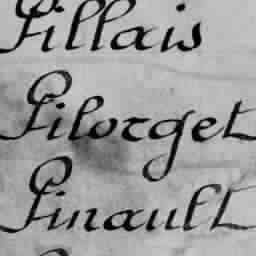 Pillais
Pilorget
Pinault